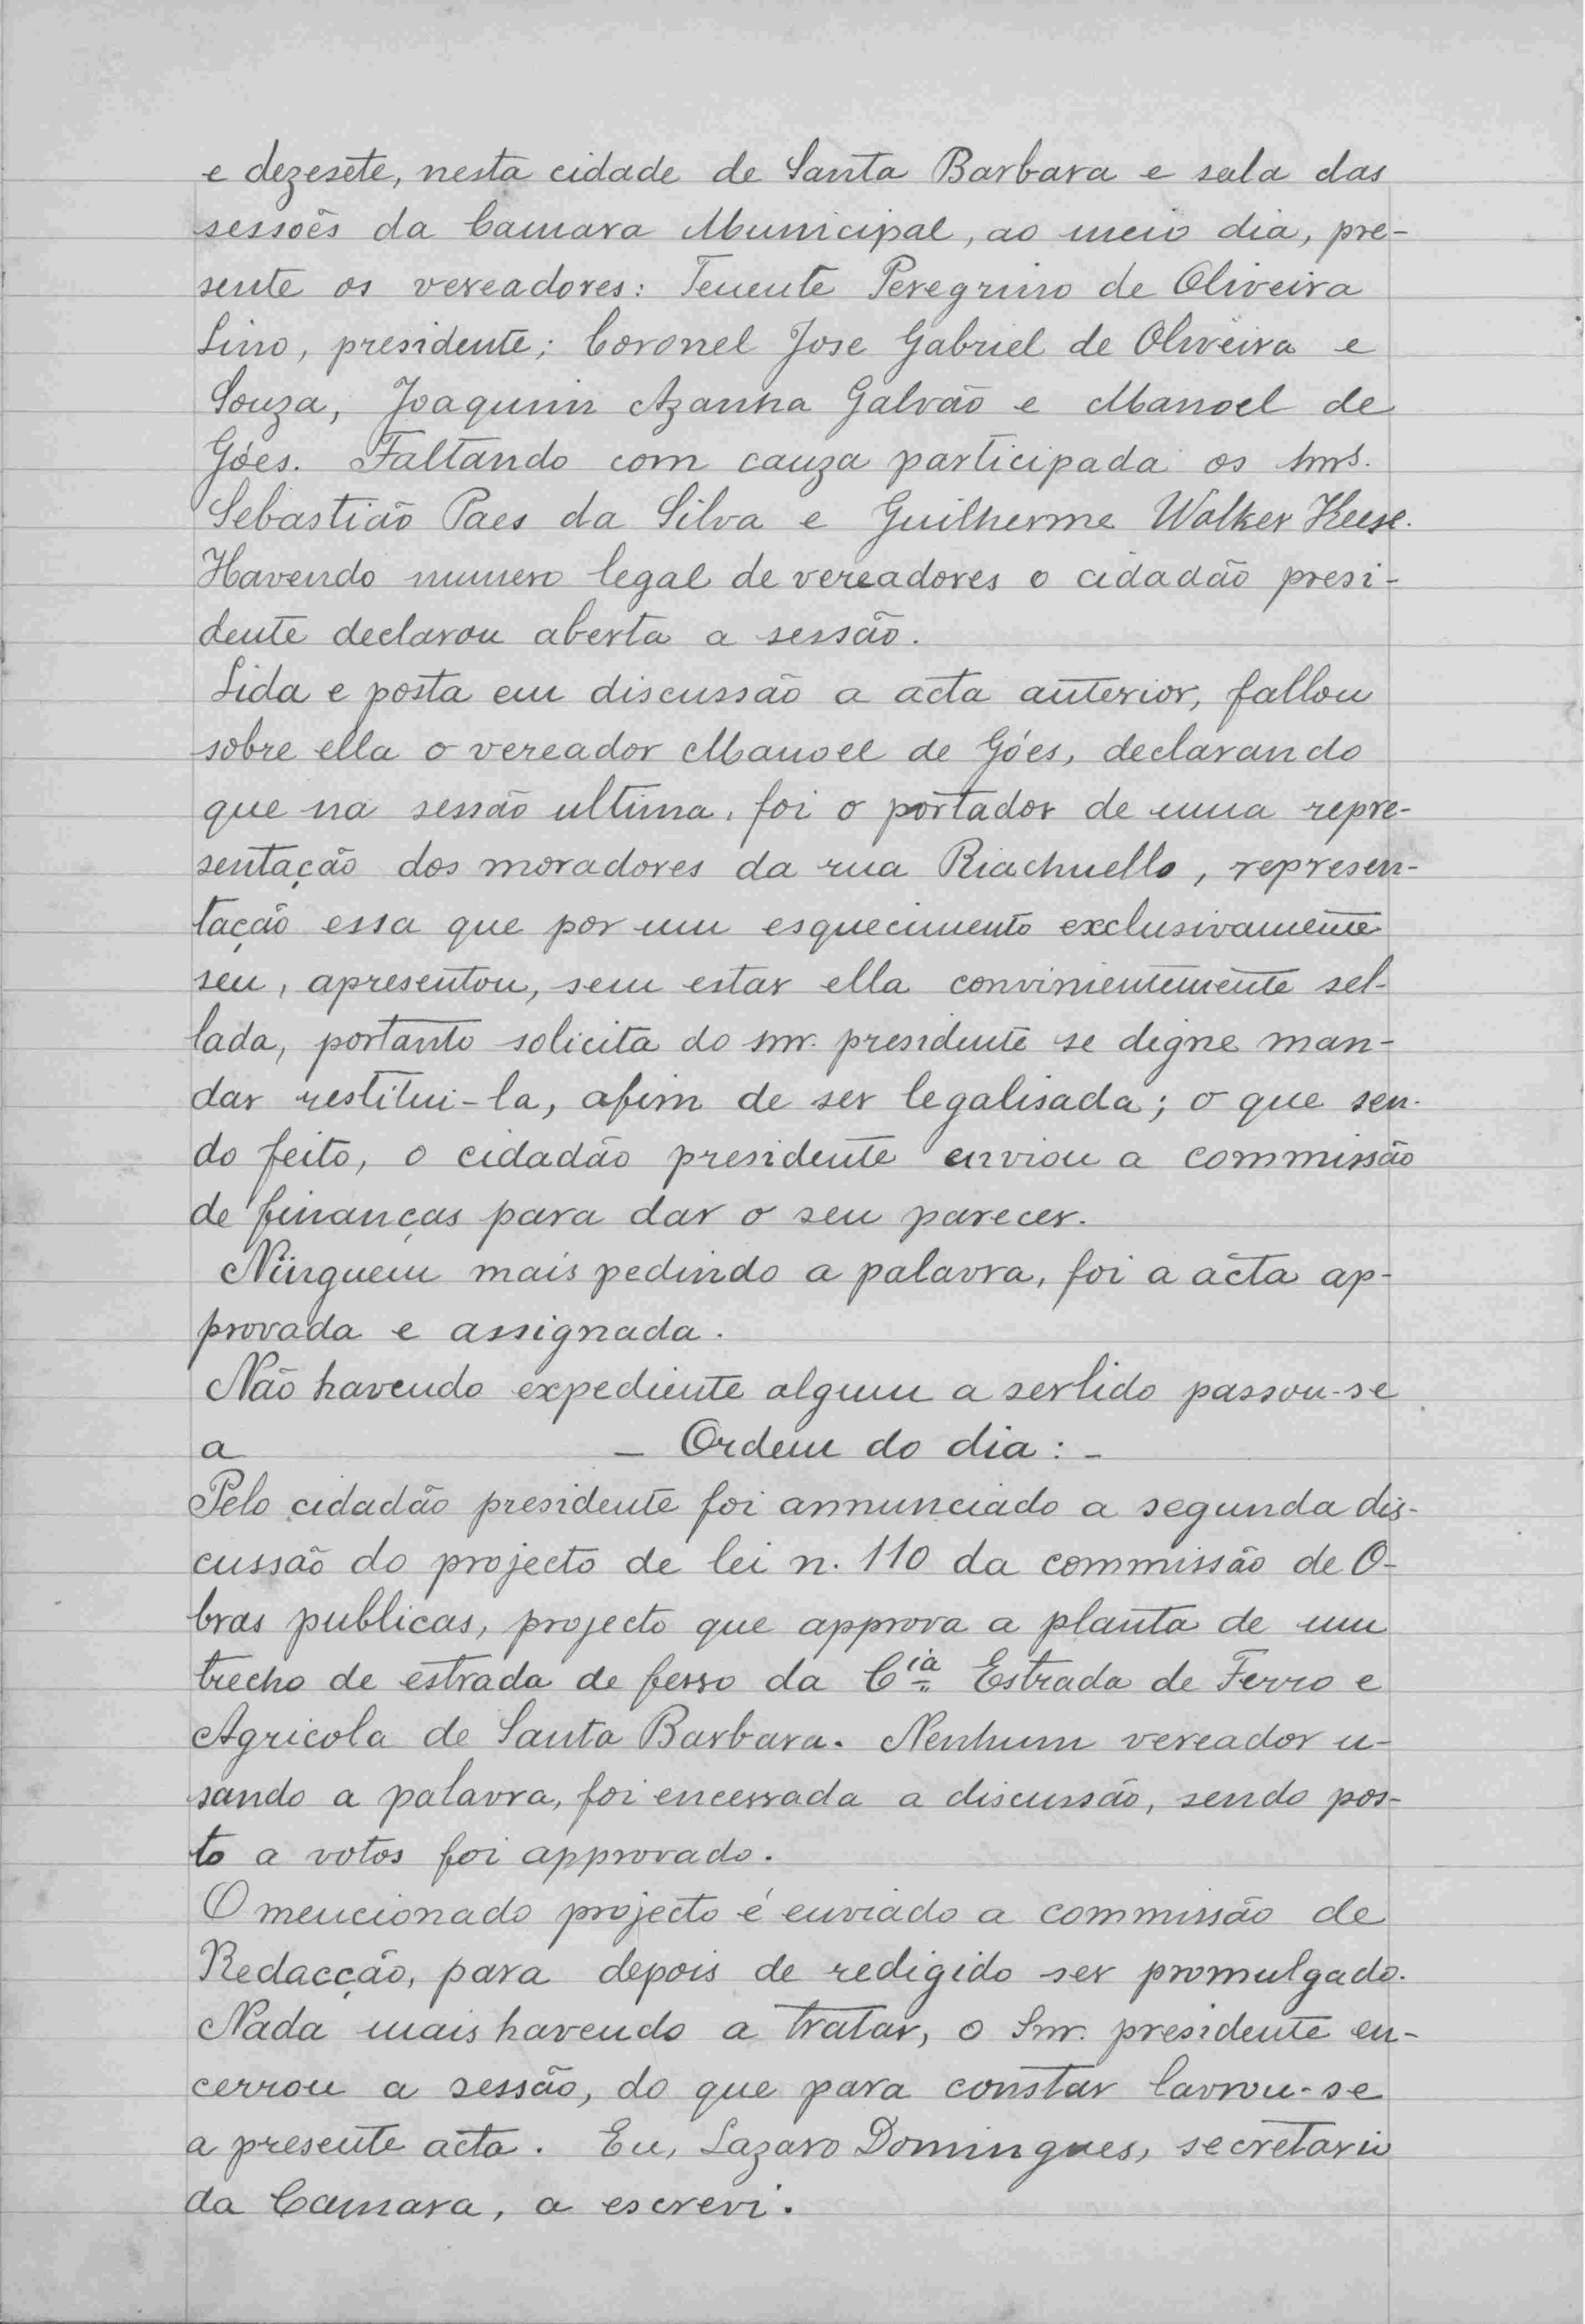 e dezesete, nesta cidade de Santa Barbara e sala das
sessoês da Camara Municipal, ao meio dia, pre-
sente os vereadores: Tenente Peregrino de Oliveira
Lino, presidente; Coronel Jose Gabriel de Oliveira e
Souza, Joaquim Azanha Galvão e Manoel de
Góes. Faltando com cauza participada os snrs.
Sebastião Paes da Silva e Guilherme Walker Keese.
Havendo numero legal de vereadores o cidadão presi-
dente declarou aberta a sessão.
Lida e posta em discussão a acta anterior, fallou
sobre ella o vereador Manoel de Góes, declarando
que na sessão ultima, foi o portador de uma repre-
sentação dos moradores da rua Riachuello, represen-
tação essa que por um esquecimento exclusivamente
seu, apresentou, sem estar ella convinientemente sel-
lada, portanto solicita do snr. presidente se digne man-
dar restitui-la, afim de ser legalisada; o que sen-
do feito, o cidadão presidente enviou a commissão
de finanças para dar o seu parecer.
Ninguem mais pedindo a palavra, foi a acta ap-
provada e assignada.
Não havendo expediente algum a ser lido passou-se
a - Ordem do dia: -
Pelo cidadão presidente foi annunciado a segunda dis-
cussão do projecto de lei n. 110 da commissão de O-
bras publicas, projecto que approva a planta de um
trecho de estrada de ferro da Cia Estrada de Ferro e
Agricola de Santa Barbara. Nenhum vereador u-
sando a palavra, foi encerrada a discussão, sendo pos-
to a votos foi approvado.
O mencionado projecto é enviado a commissão de
Redacção, para depois de redigido ser promulgado.
Nada mais havendo a tratar, o Snr. presidente en-
cerrou a sessão, do que para constar lavrou-se
a presente acta. Eu, Lazaro Domingues, secretario
da Camara, a escrevi.